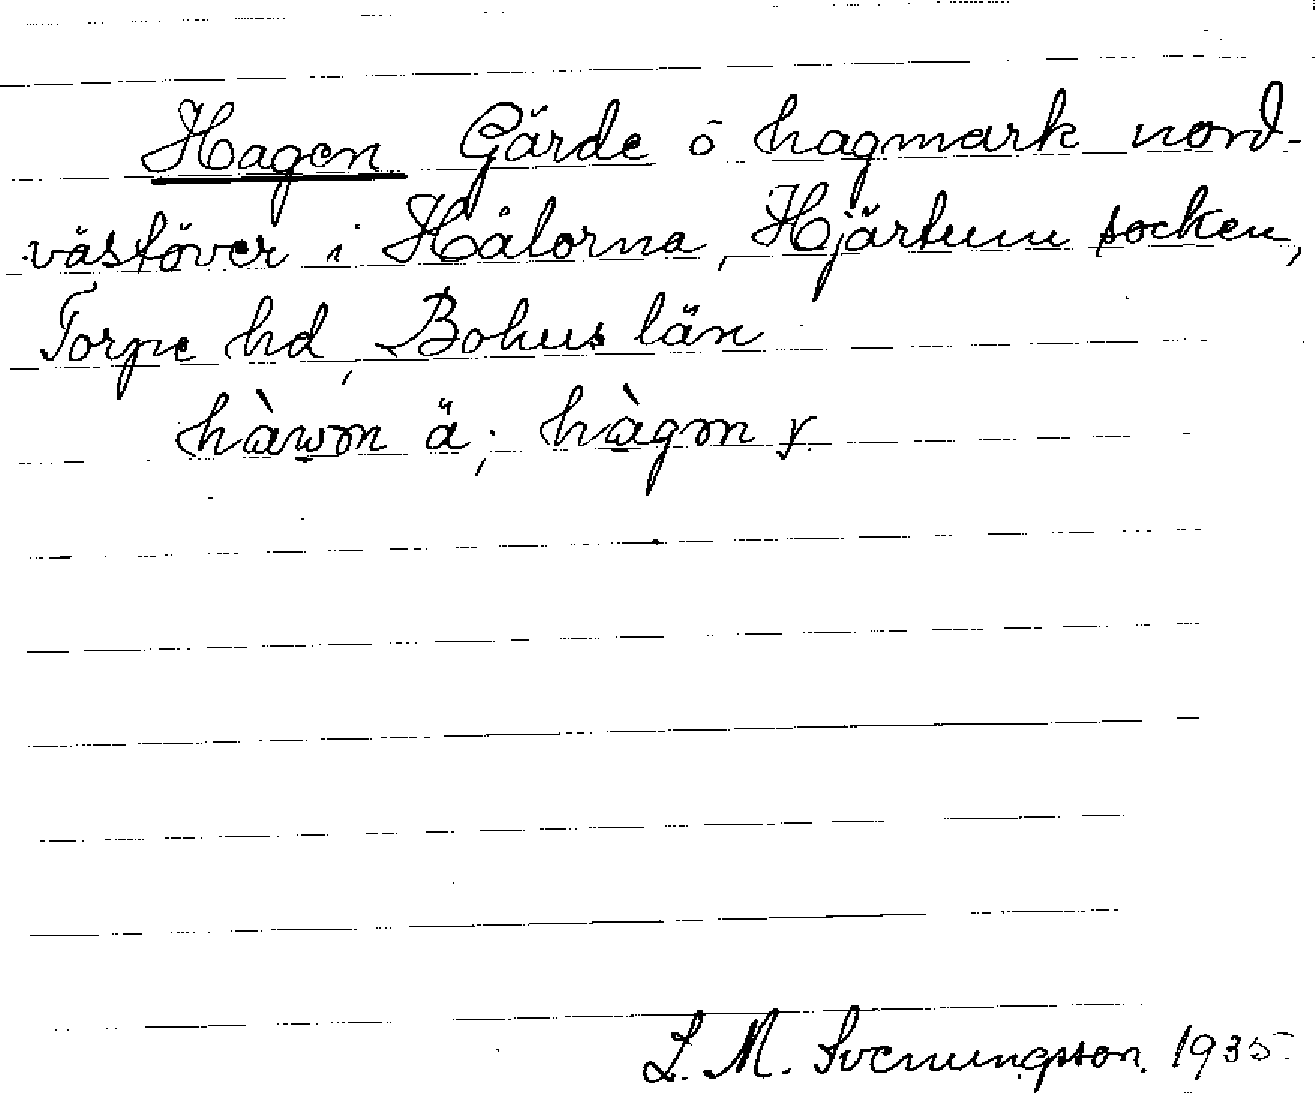 Hagen Gärde o hagmark nord-
västöver i Hålorna, Hjärtum socken,
Torpe hd, Bohus län
hàwɷn ä; hàgɷn y.
L. M. Svenungsson. 1935